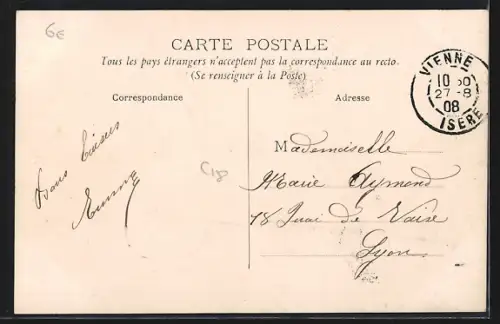 6€
CARTE POSTALE
Tous les pays étrangers n'acceptent pas la correspondance au recto.
(Se renseigner à la Poste)
Correspondance
Adresse
VIENNE
10 50
27 - 8
08
ISÈRE
Bons baisers
C18
Mademoiselle
Marie Aymond
18 Quai de Vaise
Lyon